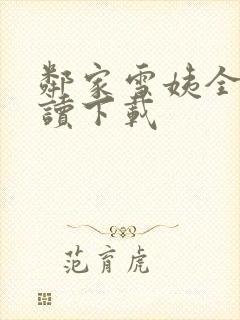 鄰家雪姨全
讀下載
范育虎